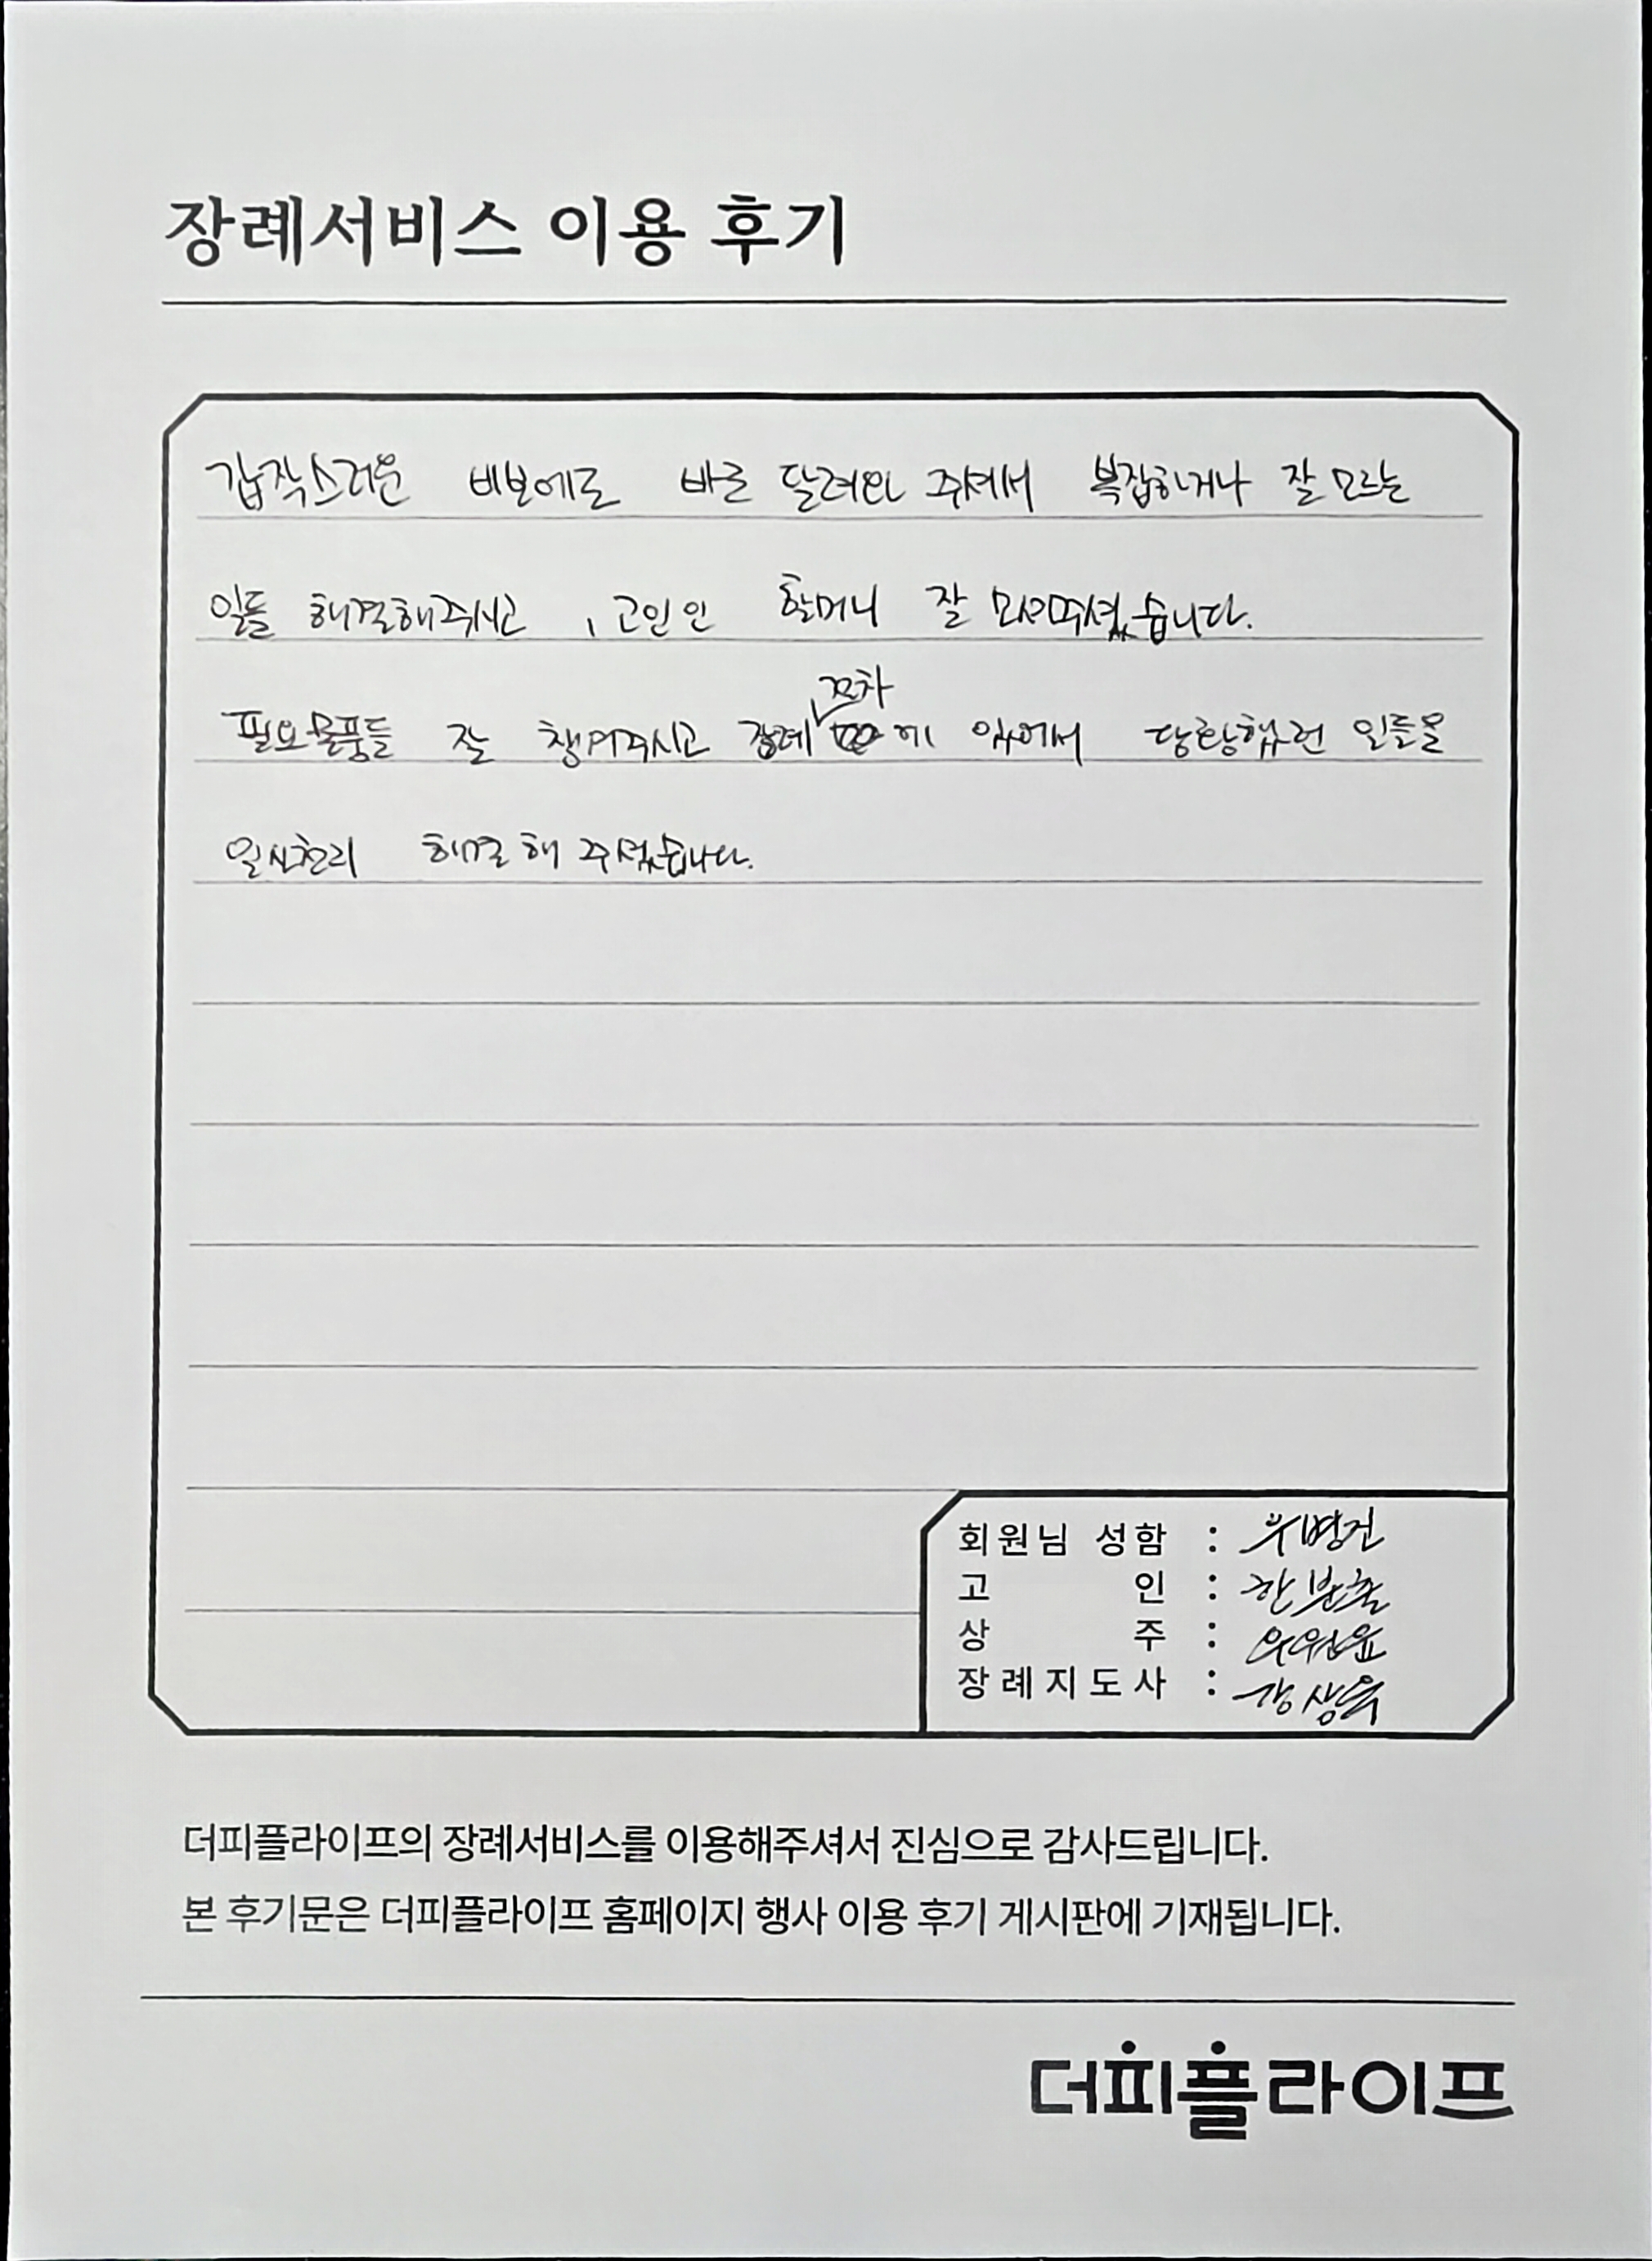 장례서비스 이용 후기
갑작스러운 비보에도 바로 달려와 주셔서 복잡하거나 잘 모르는
일들 해결해주시고, 고인인 할머니 잘 모셔주셨습니다.
꼬차
필요물품들 잘 챙겨주시고 장례 에 있어서 당황했던 일들을
일사천리 해결해 주셨습니다.
회원님 성함 : 우병건
고 인 : 한분출
상 주 : 우원윤
장례지도사 : 강상욱
더피플라이프의 장례서비스를 이용해주셔서 진심으로 감사드립니다.
본 후기문은 더피플라이프 홈페이지 행사 이용 후기 게시판에 기재됩니다.
더피플라이프